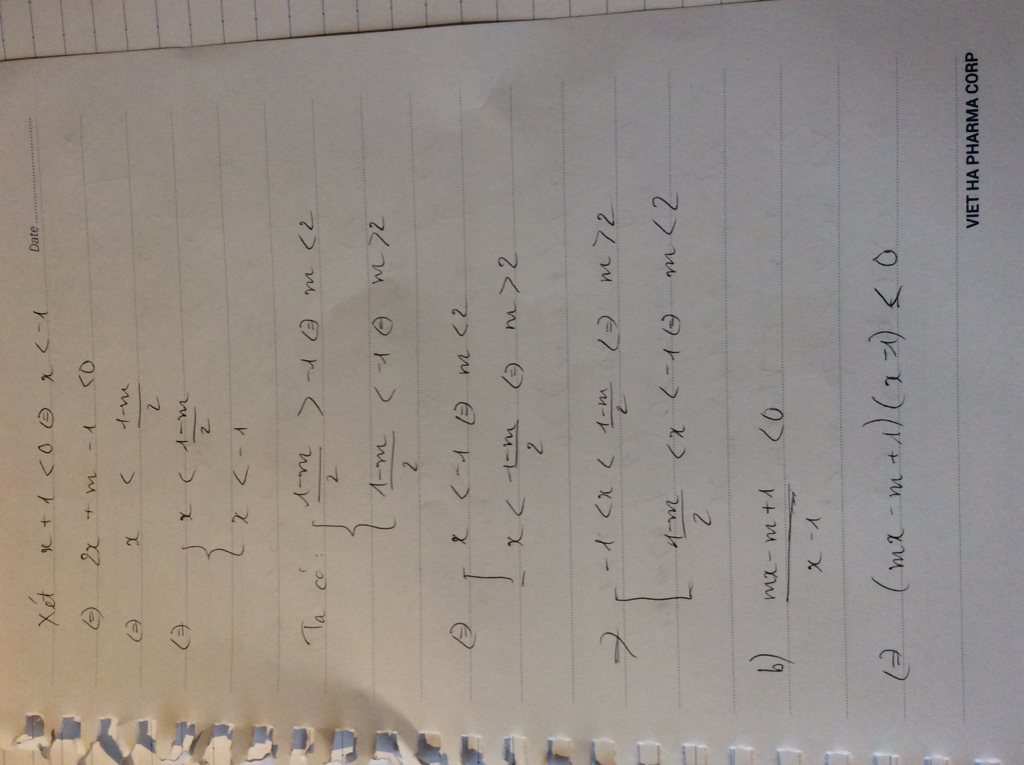 Date
Xét x + 1 < 0 ⇔ x < -1
⇔ 2x + m - 1 < 0
⇔ x < \frac{1-m}{2}
⇔ { x < \frac{1-m}{2}
x < -1
Ta có: { \frac{1-m}{2} > -1 ⇔ m < 2
\frac{1-m}{2} < -1 ⇔ m > 2
⇔ [ x < -1 ⇔ m < 2
x < \frac{1-m}{2} ⇔ m > 2
→ [ -1 < x < \frac{1-m}{2} ⇔ m > 2
\frac{1-m}{2} < x < -1 ⇔ m < 2
b) \frac{mx - m + 1}{x - 1} < 0
⇔ (mx - m + 1)(x - 1) < 0
VIET HA PHARMA CORP